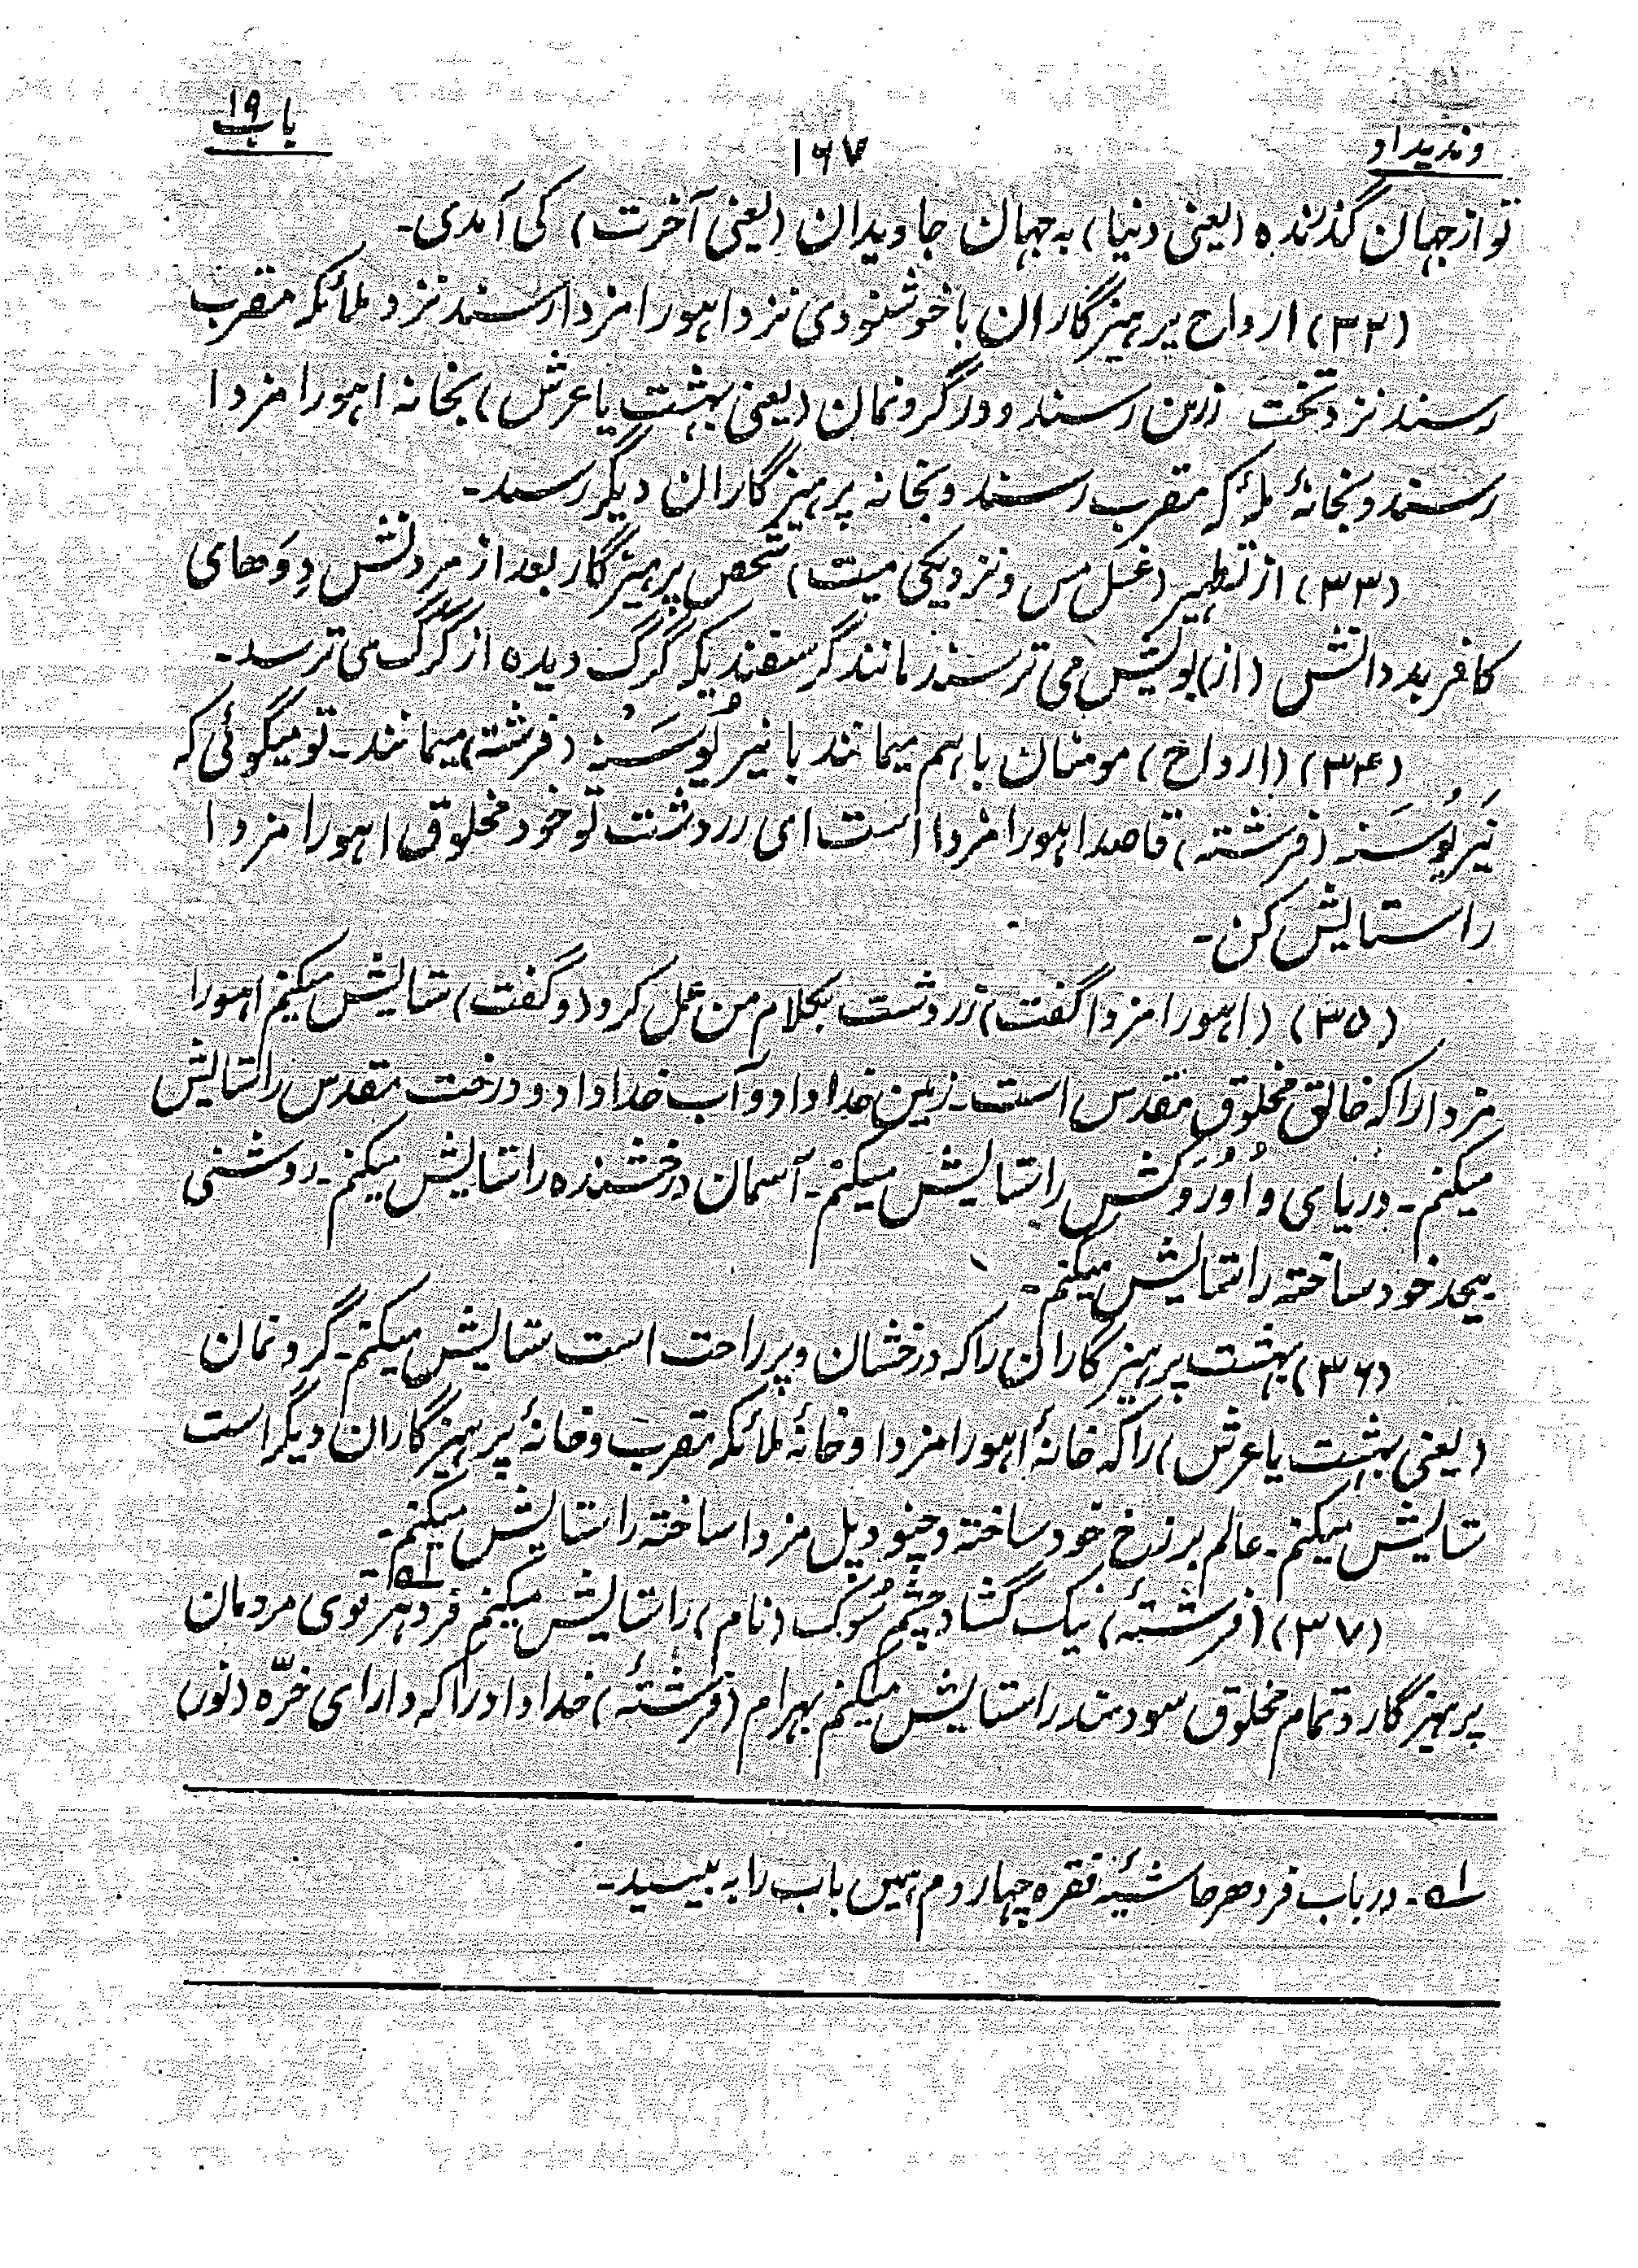 وندیداد
۱۶۷
باب ۱۹
تو از جهان گذرنده (یعنی دنیا) به جهان جاویدان (یعنی آخرت) کی آمدی۔
(۳۲) ارواح پرهیزگاران با خوشنودی نزد اهورا مزدا رسند نزد ملائکه مقرب
رسند نزد تخت زرین رسند و در گرونمان (یعنی بهشت یا عرش) بخانه اهورا مزدا
رسند و بخانهٔ ملائکه مقرب رسند و بخانه پرهیزگاران دیگر رسند۔
(۳۳) از تطهیر (غسل مس و نزدیکی میت) شخص پرهیزگار بعد از مردنش دِوَهای
کافر بد دانش (از) بویش می ترسند مانند گوسفندیکه گرگ دیده از گرگ می ترسد۔
(۳۴) (ارواح) مومنان باهم میمانند با نیریُوسَنه (فرشته) میمانند۔ تو میگوئی که
نَیریُوسَنه (فرشته) قاصد اهورا مزدا است ای زردشت تو خود مخلوق اهورا مزدا
را ستایش کن۔
(۳۵) (اهورا مزدا گفت) زردشت بکلام من عمل کرد (و گفت) ستایش میکنم اهورا
مزدا را که خالق مخلوق مقدس است۔ زمین خدا داد و آب خدا داد و درخت مقدس را ستایش
میکنم۔ دریای وُاُورُوَکَش را ستایش میکنم۔ آسمان درخشنده را ستایش میکنم۔ روشنی
بیحد خود ساخته را ستایش میکنم۔
(۳۶) بهشت پرهیزگاران را که درخشان و پر راحت است ستایش میکنم۔ گرونمان
(یعنی بهشت یا عرش) را که خانهٔ اهورا مزدا و خانهٔ ملائکه مقرب و خانهٔ پرهیزگاران دیگر است
ستایش میکنم۔ عالم برزخ خود ساخته و چنود پل مزدا ساخته را ستایش میکنم۔
(۳۷) (فرشتهٔ) نیک گشاد چشم سُوک (نام) را ستایش میکنم فردهر۱ قوی مردمان
پرهیزگار و تمام مخلوق سودمند را ستایش میکنم بهرام (فرشتهٔ) خدا داد را که دارای خرّه (نور)
۱۔ در باب فردهر حاشیهٔ فقره چهاردهم همین باب را به بینید۔